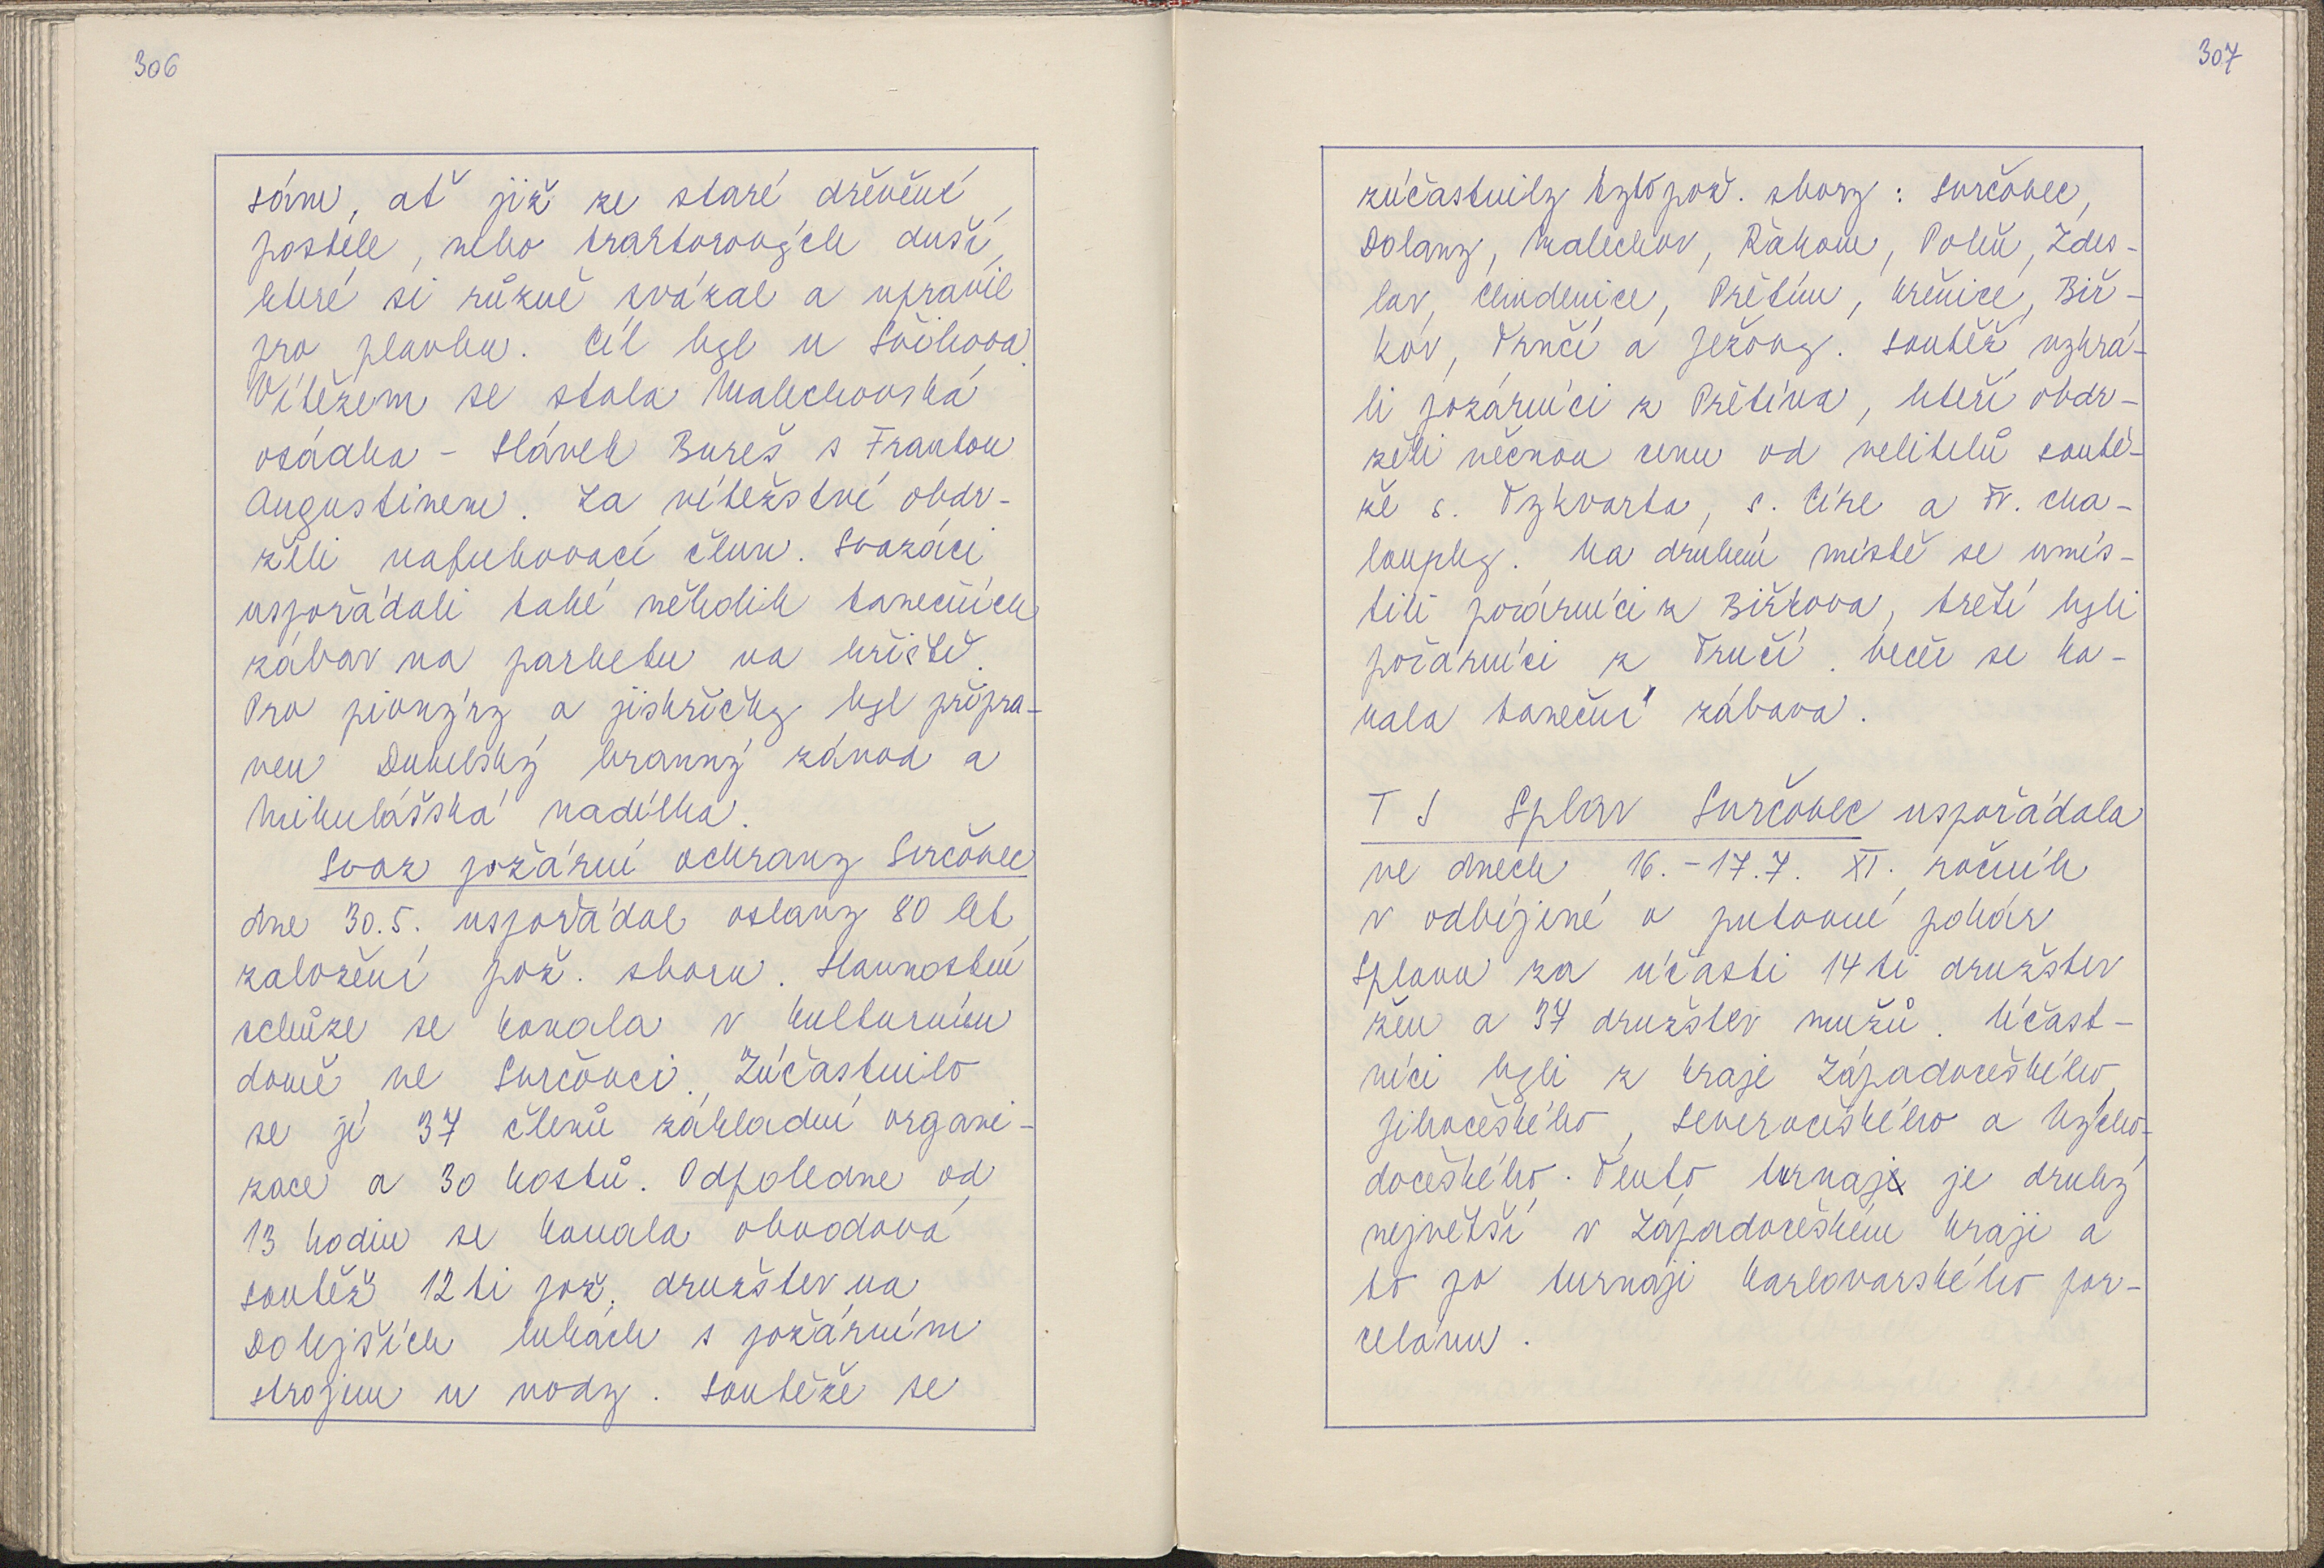 306
sám, ať již ze staré dřevěné
postele, nebo traktorových duší,
které si různě svázal a upravil
pro plavbu. Cíl byl u Švihova.
Vítězem se stala Malechovská
osádka - Slávek Bureš s Frantou
Augustinem. Za vítězství obdr-
želi nafukovací člun. Svazáci
uspořádali také několik tanečních
zábav na parketu na hřišti.
Pro pionýry a jiskřičky byl připra-
ven Dukelský branný závod a
Mikulášská nadílka.
Svaz požární ochrany Svrčovec
dne 30.5. uspořádal oslavy 80 let
založení pož. sboru. Slavnostní
schůze se konala v Kulturním
domě ve Svrčovci. Zúčastnilo
se jí 37 členů základní organi-
zace a 30 hostů. Odpoledne od
13 hodin se konala obvodová
soutěž 12ti pož. družstev na
Dolejších lukách s požárním
strojem u vody. Soutěže se
307
zúčastnily tyto pož. sbory: Svrčovec,
Dolany, Malechov, Řakom, Poleň, Zdes-
lav, Chudenice, Přetín, Křenice, Biř-
kov, Trnčí a Ježovy. Soutěž vyhrá-
li požárníci z Přetína, kteří obdr-
želi věčnou cenu od velitelů soutě-
že s. Tykvarta, s. Cíze a Fr. Cha-
loupky. Na druhém místě se umís-
tili požárníci z Biřkova, třetí byli
požárníci z Trnčí. Večer se ko-
nala taneční zábava.
T J Splav Svrčovec uspořádala
ve dnech 16.-17.7. XI. ročník
v odbíjené o putovní pohár
Splavu za účasti 14ti družstev
žen a 37 družstev mužů. Účast-
níci byli z kraje Západočeského,
Jihočeského, Severočeského a Výcho-
dočeského. Tento turnaj je druhý
největší v Západočeském kraji a
to po turnaji Karlovarského por-
celánu.